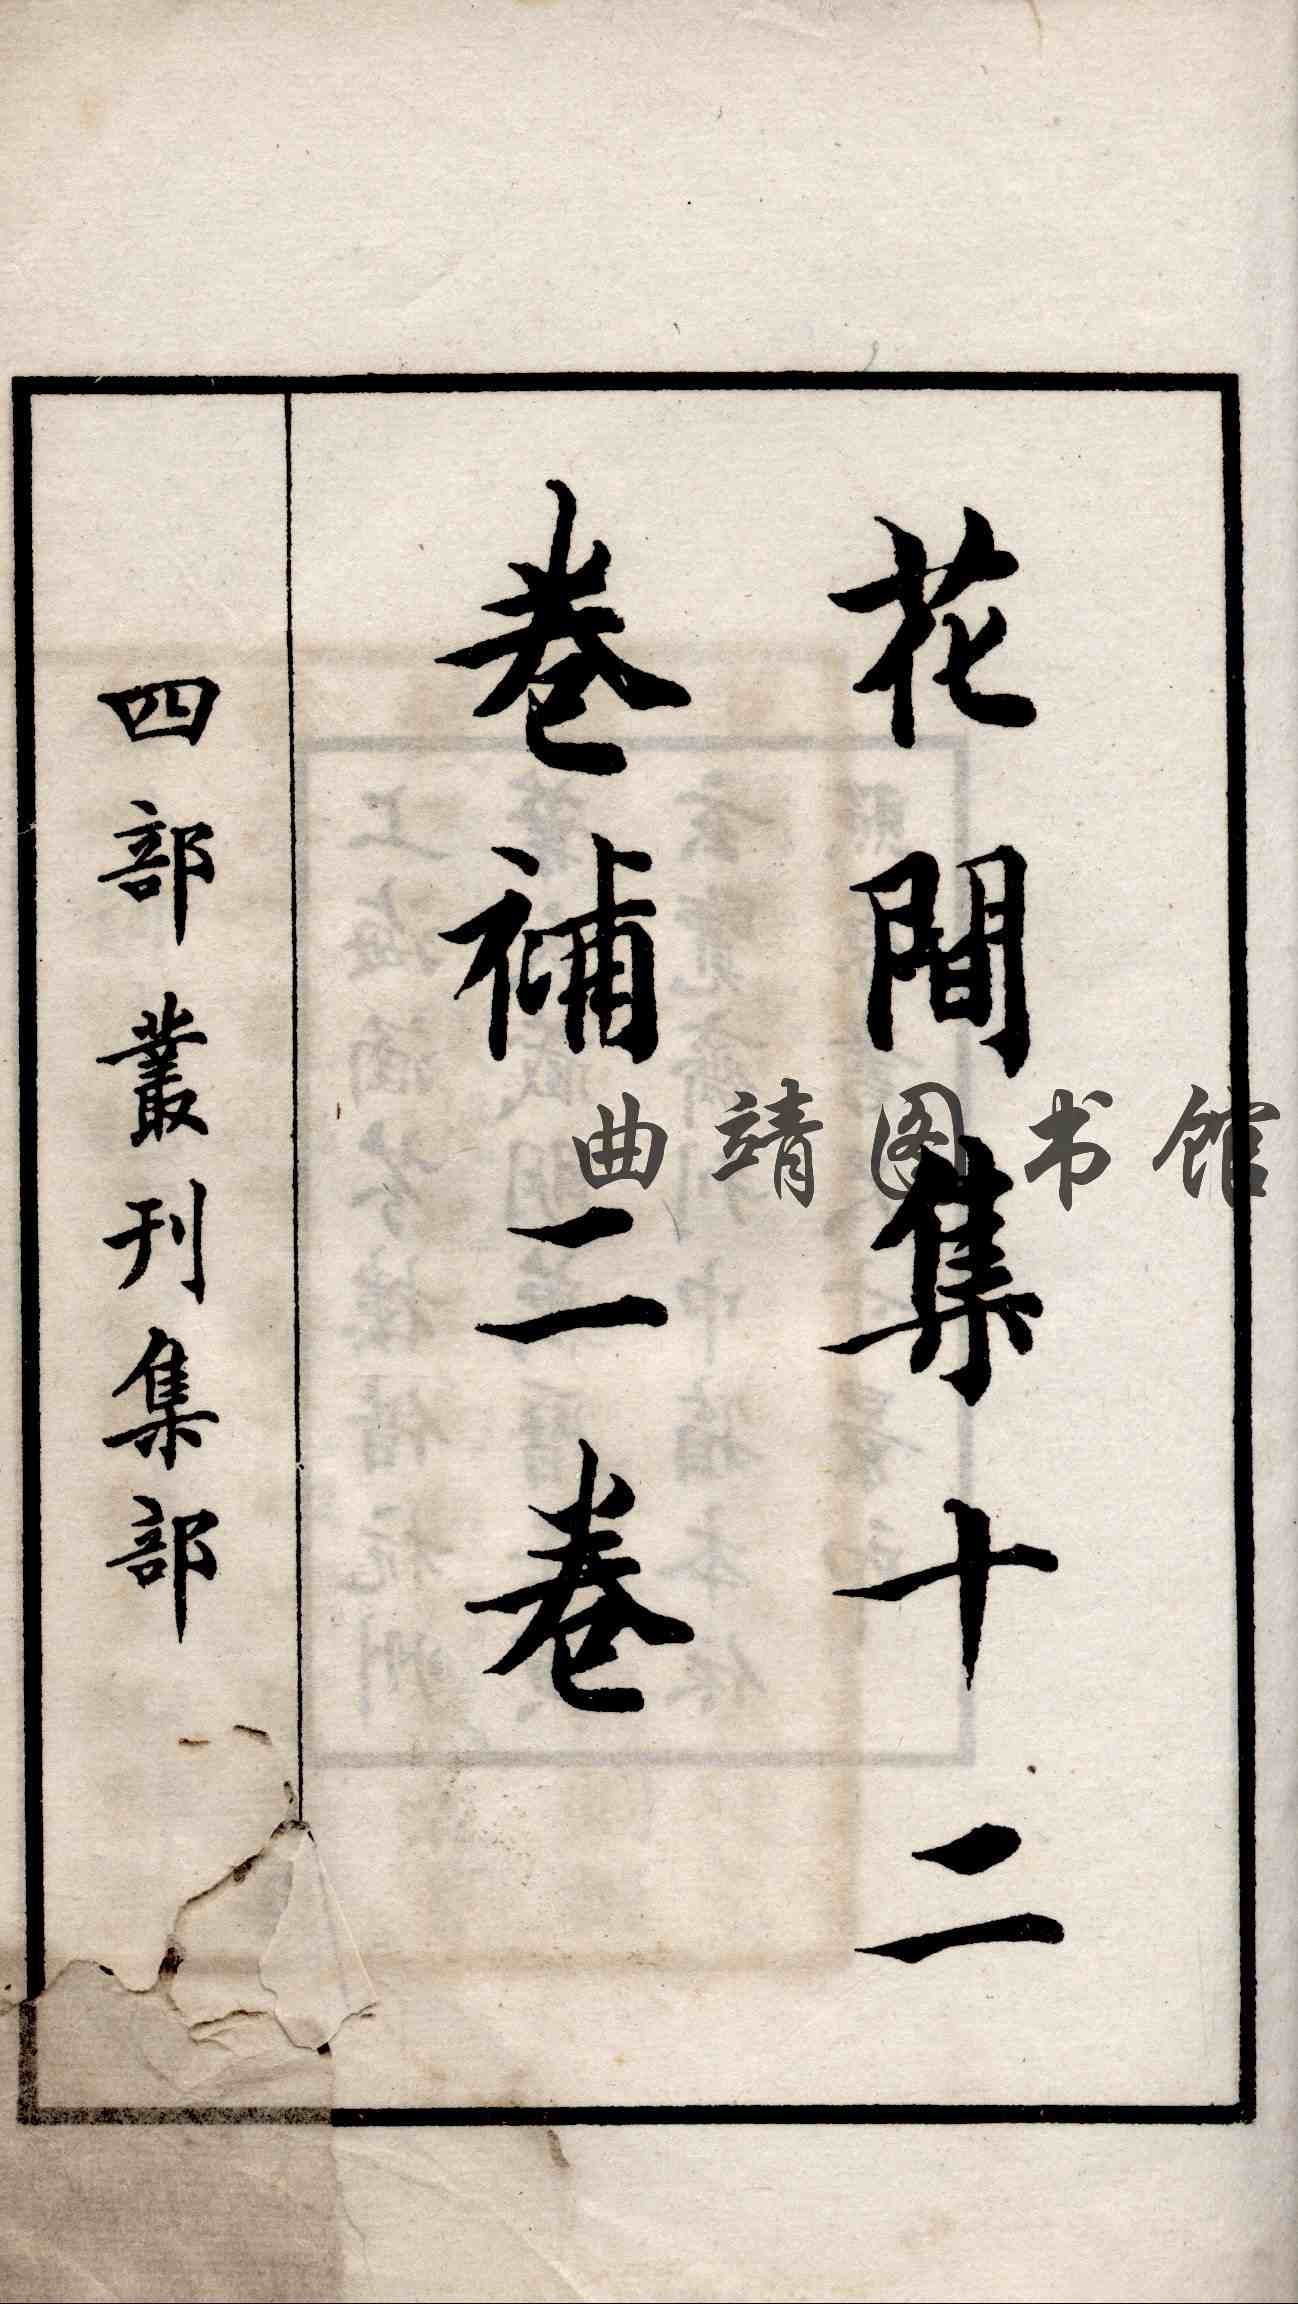 花間集十二
卷補二卷
四部叢刊集部
曲靖图书馆